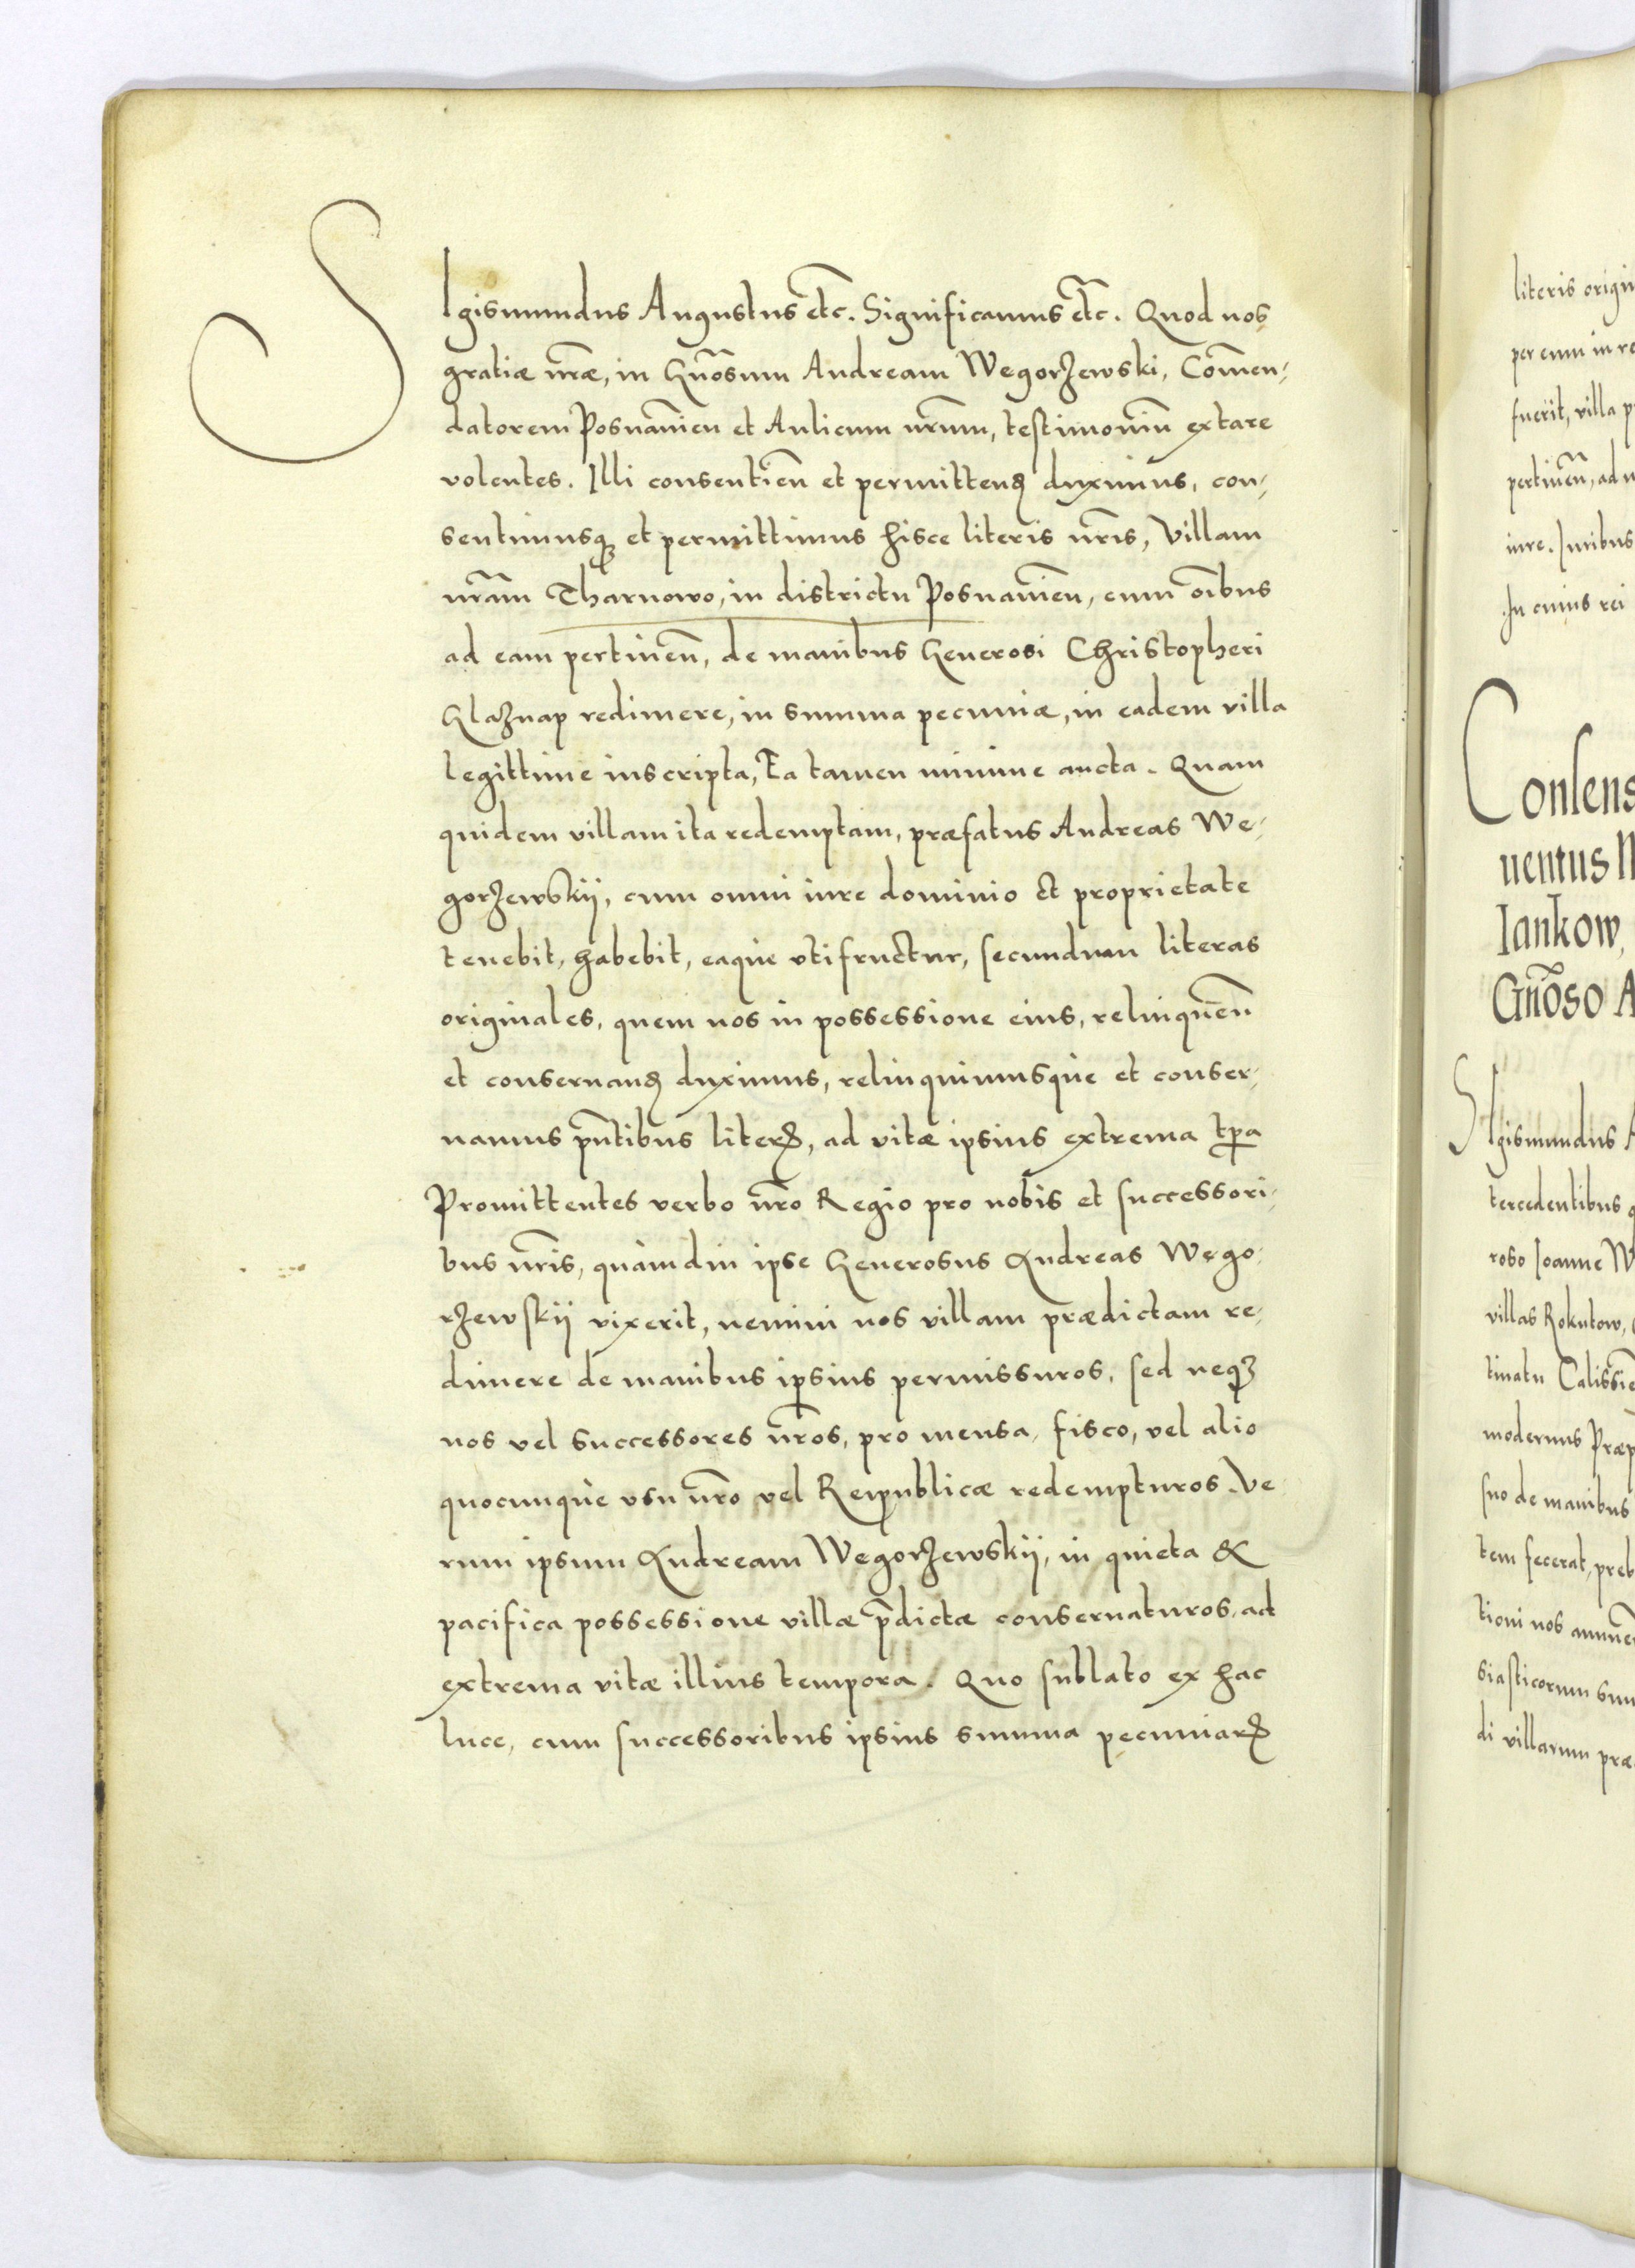 SIgismundus Augustus etc̃. Significamus etc̃. Quod nos
gratiæ nr̃æ, in Gñosum Andream Wegorzewski, Com̃en⸗
datorem Posnanien̄ et Aulicum nr̃um, testimoniũ extare
volentes. Illi consentien̄ et permitten₰ duximus, con⸗
sentimusqꝫ et permittimus hisce literis nr̃is, Villam
nr̃am Tharnowo, in districtu Posnanien̄, cum oĩbus
ad eam pertinen̄, de manibus Generosi Christopheri
Glaznap redimere, in summa pecuniæ, in eadem villa
legittime inscripta, Ea tamen minime aucta. Quam
quidem villam ita redemptam, præfatus Andreas We⸗
gorzewskij, cum omni iure dominio et proprietate
tenebit, habebit, eaque vtifructur, secundum literas
originales, quem nos in possessione eius, relinquen̄
et conseruan₰ duximus, relinquimusque et conser⸗
uamus pñtibus literꝭ, ad vitæ ipsius extrema tp̄a
Promittentes verbo nr̃o Regio pro nobis et successori⸗
bus nr̃is, quamdiu ipse Generosus Andreas Wego⸗
rzewskij vixerit, nemini nos villam prædictam re⸗
dimere de manibus ipsius permissuros, sed neqꝫ
nos vel successores nr̃os, pro mensa, fisco, vel alio
quocunque vsu nr̃o vel Reipublicæ redempturos. Ve
rum ipsum Andream Wegorzewskij, in quieta &
pacifica possessione villæ p̃dictæ conseruaturos, ad
extrema vitæ illius tempora. Quo sublato ex hac
luce, cum successoribus ipsius summa pecuniarꝭ
literis origin
per eum in re
fuerit, villa p
pertinen̄, ad n
iure. Iuribus
In cuius rei
Consens
uentus M
Iankow,
Gñoso A
SIgismundus A
tercedentibus q
roso Ioanne W
villas Rokutow,
tinatu Calissie
modernus Præp
suo de manibus
tem fecerat, preb
tioni nos annue
siasticorum sum
di villarum præ